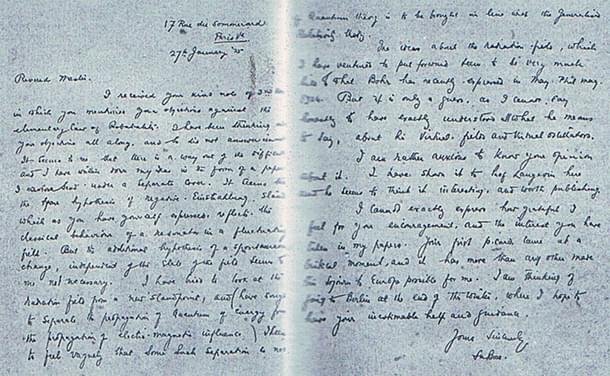 17 Rue du Sommerard
Paris Ve
27th January '25
Revered Master.
I received your kind note of 3rd
in which you mention your objections against the
elementary law of Probability. I have been thinking
your objections all along, and so did not answer
It seems to me that there is a way out of the difficulty
and I have written down my ideas in the form of a paper
I under a separate cover. It seems that
the hypothesis of negative Einstrahlung
which as you have yourself expressed reflects the
classical behaviour of a resonator in a fluctuating
field. But the additional hypothesis of a spontaneous
change, independent of the state of the field seems to
me not necessary. I have tried to look at the
radiation field from a new standpoint, and have sought
to separate the propagation of Quantum of energy from
the propagation of electro-magnetic influence. I seem
to feel vaguely that some such separation is
Quantum theory is to be brought in line with the Generalised
Relativity theory.
The ideas about the radiation field, which
I have ventured to put forward seem to be very much
like what Bohr has recently expressed in May Phil. Mag.
1924. But it is only a guess, as I cannot say
honestly to have exactly understood all what he means
to say, about his virtual fields and virtual oscillators.
I am rather anxious to know your opinion
about it. I have shown it to Prof Langevin here
and he seems to think it interesting, and worth publishing.
I cannot exactly express how grateful I
feel for your encouragement, and the interest you have
taken in my papers. Your first p.card came at a
critical moment, and it has more than any other made
this sojourn to Europe possible for me. I am thinking of
going to Berlin at the end of the winter, where I hope to
have your inestimable help and guidance.
Yours Sincerely
SnBose.